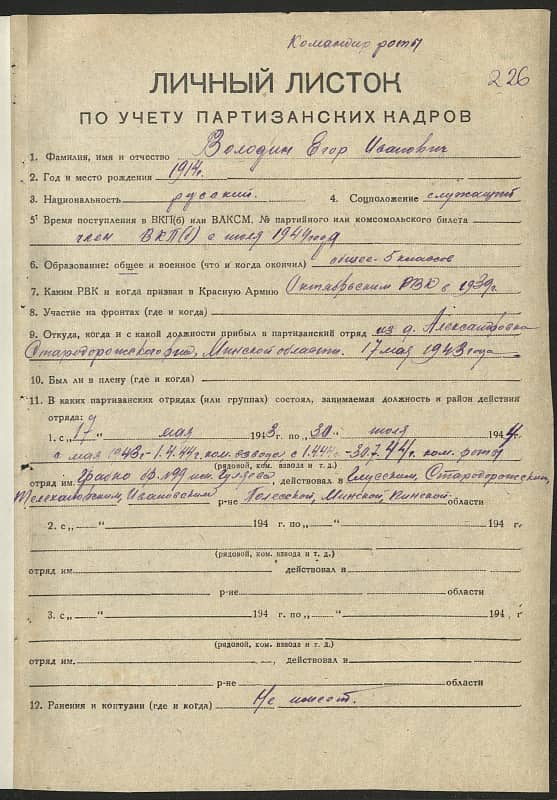 Командир роты
226
ЛИЧНЫЙ ЛИСТОК
ПО УЧЕТУ ПАРТИЗАНСКИХ КАДРОВ
1. Фамилия, имя и отчество Володин Егор Иванович
2. Год и место рождения 1914г.
3. Национальность русский. 4. Соцположение служащий
5. Время поступления в ВКП(б) или ВЛКСМ, № партийного или комсомольского билета
член ВКП(б) с июля 1944 года
6. Образование: общее и военное (что и когда окончил) общее - 5 классов
7. Каким РВК и когда призван в Красную Армию Октябрьским РВК в 1939г.
8. Участие на фронтах (где и когда)
9. Откуда, когда и с какой должности прибыл в партизанский отряд из д. Александровка
Стародорожского р-на, Минской области. 17 мая 1943 года
10. Был ли в плену (где и когда)
11. В каких партизанских отрядах (или группах) состоял, занимаемая должность и район действия
отряда:
1. с „17 “ мая 1943 г. по „30 “ июля 1944 г.
с мая 1943г - 1.4.44г. ком. взвода с 1.4.44г - 30.7.44г. ком. роты
(рядовой, ком. взвода и т. д.)
отряд им. Храпко бр. №99 им. Гуляева, действовал в Глусском, Стародорожском,
Телехановском, Ивановском р-не Полесской, Минской, Пинской области
2. с „ “ 194 г. по „ “ 194 г.
(рядовой, ком. взвода и т. д.)
отряд им. действовал в
р-не области
3. с „ “ 194 г. по „ “ 194 г
(рядовой, ком. взвода и т. д.)
отряд им. , действовал в
р-не области
12. Ранения и контузии (где и когда) Не имеет.